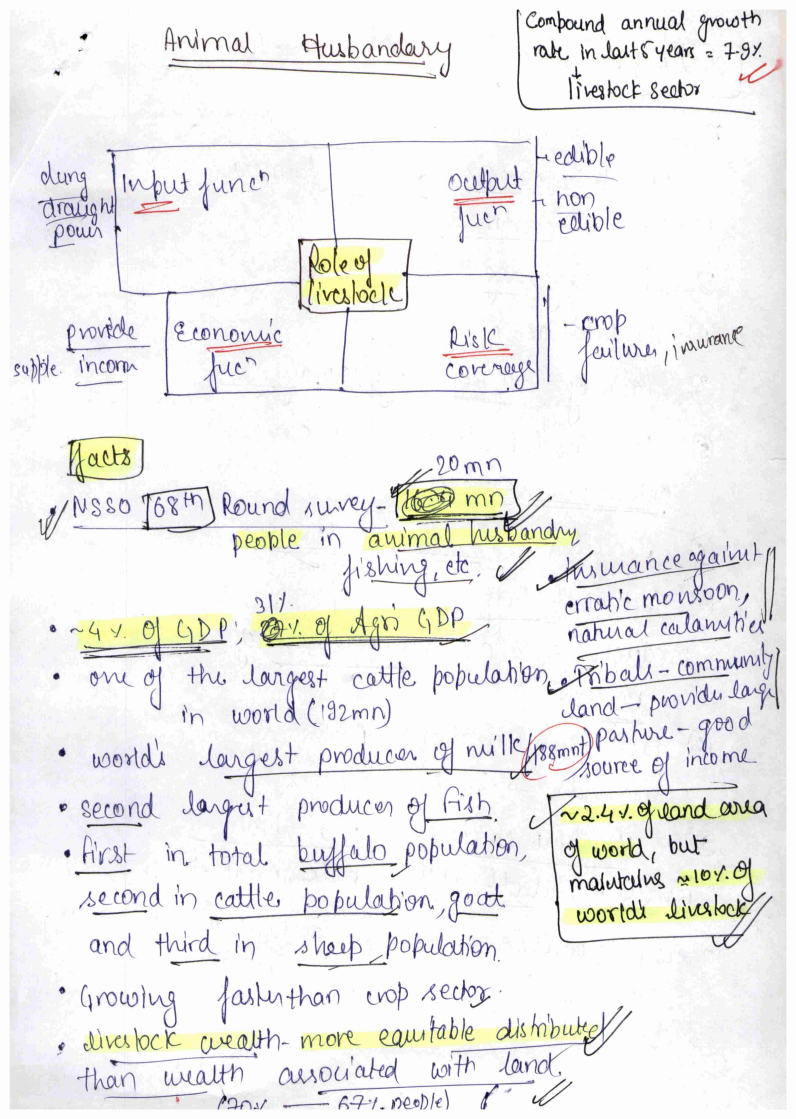 Animal Husbandary
Compound annual growth
rate in last 5 years = 7.9%
livestock sector
dung
draught
power
Input funcⁿ
Output
fucⁿ
edible
non
edible
Role of
livestock
provide
supple. incom
Economic
fucⁿ
Risk
coverage
- crop
failures, insurance
facts
20 mn
• NSSO 68th Round survey- mn
people in animal husbandry,
fishing, etc.
31%
• ~4% of GDP; % of Agri GDP
• one of the largest cattle population
in world (192mn)
• world's largest producer of milk 188mnt
• second largest producer of fish.
• first in total buffalo population,
second in cattle population, goat
and third in sheep population.
• Growing faster than crop sector.
• livestock wealth- more equitable distributed
than wealth associated with land.
(70% — 67% people)
• Insurance against
erratic monsoon,
natural calamities
• Tribals - community
land - provides large
pasture - good
source of income
~2.4% of land area
of world, but
maintains ≈10% of
world's livestock